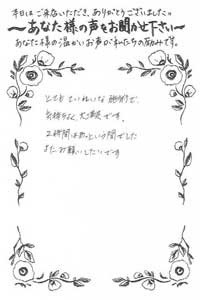 本日は ご来店いただき、ありがとうございました。
～あなた様の声をお聞かせ下さい～
あなた様の温かいお声が私たちの励みです。
とても ていねいな 施術で、
気持ちよく、大満足です。
2時間はあっという間でした
またお願いしたいです